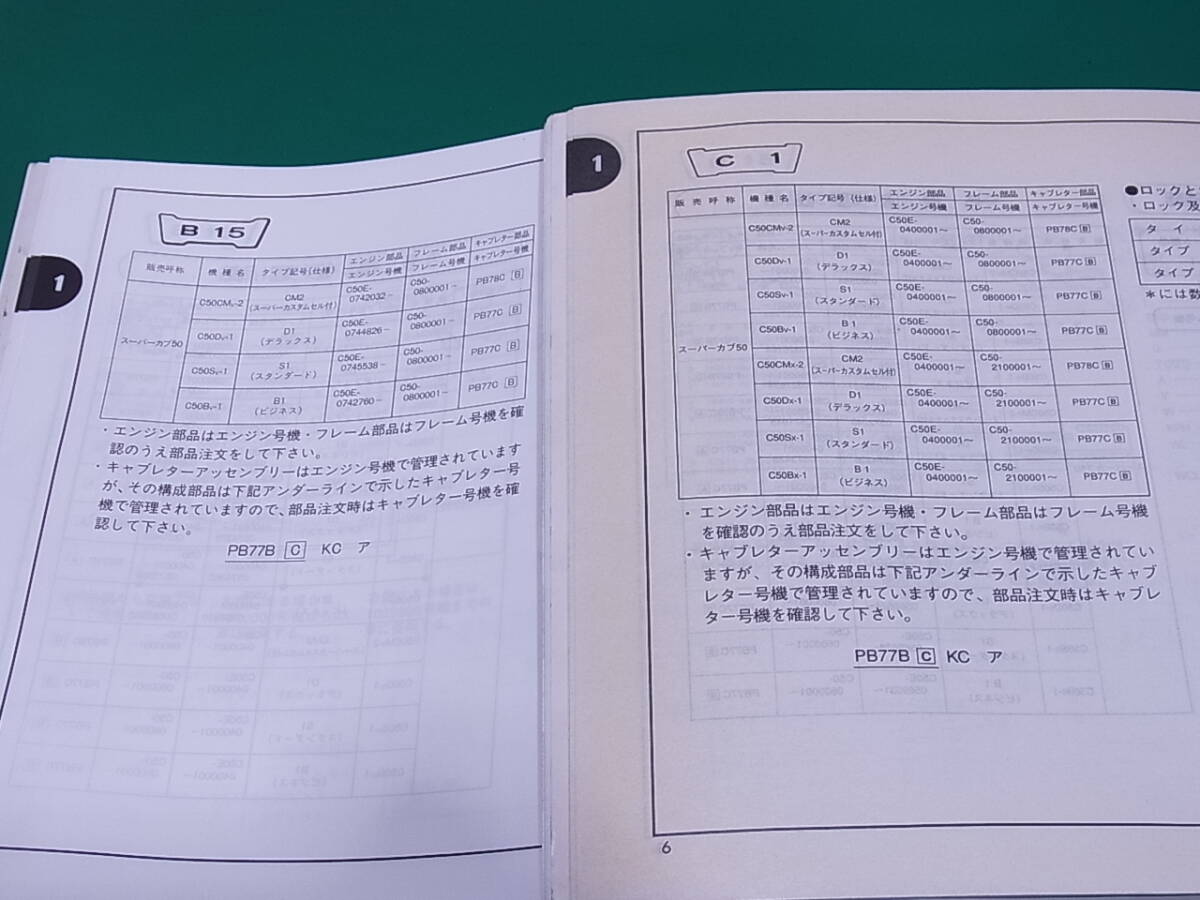 1
B 15
販売呼称 機種名 タイプ記号(仕様) エンジン部品 フレーム部品 キャブレター部品
エンジン号機 フレーム号機 キャブレター号機
スーパーカブ50
C50CMV-2 CM2 (スーパーカスタムセル付) C50E-0742032~ C50-0800001~ PB78C B
C50DV-1 D1 (デラックス) C50E-0744826~ C50-0800001~ PB77C B
C50SV-1 S1 (スタンダード) C50E-0745538~ C50-0800001~ PB77C B
C50BV-1 B1 (ビジネス) C50E-0742760~ C50-0800001~ PB77C B
・エンジン部品はエンジン号機・フレーム部品はフレーム号機を確
認のうえ部品注文をして下さい。
・キャブレターアッセンブリーはエンジン号機で管理されています
が、その構成部品は下記アンダーラインで示したキャブレター号
機で管理されていますので、部品注文時はキャブレター号機を確
認して下さい。
PB77B C KC ア
1
C 1
販売呼称 機種名 タイプ記号(仕様) エンジン部品 フレーム部品 キャブレター部品
エンジン号機 フレーム号機 キャブレター号機
スーパーカブ50
C50CMV-2 CM2 (スーパーカスタムセル付) C50E-0400001~ C50-0800001~ PB78C B
C50DV-1 D1 (デラックス) C50E-0400001~ C50-0800001~ PB77C B
C50SV-1 S1 (スタンダード) C50E-0400001~ C50-0800001~ PB77C B
C50BV-1 B1 (ビジネス) C50E-0400001~ C50-0800001~ PB77C B
C50CMX-2 CM2 (スーパーカスタムセル付) C50E-0400001~ C50-2100001~ PB78C B
C50DX-1 D1 (デラックス) C50E-0400001~ C50-2100001~ PB77C B
C50SX-1 S1 (スタンダード) C50E-0400001~ C50-2100001~ PB77C B
C50BX-1 B1 (ビジネス) C50E-0400001~ C50-2100001~ PB77C B
・エンジン部品はエンジン号機・フレーム部品はフレーム号機
を確認のうえ部品注文をして下さい。
・キャブレターアッセンブリーはエンジン号機で管理されてい
ますが、その構成部品は下記アンダーラインで示したキャブ
レター号機で管理されていますので、部品注文時はキャブレ
ター号機を確認して下さい。
PB77B C KC ア
6
●ロックと
・ロック及
タイ
タイプ
タイプ
*には数